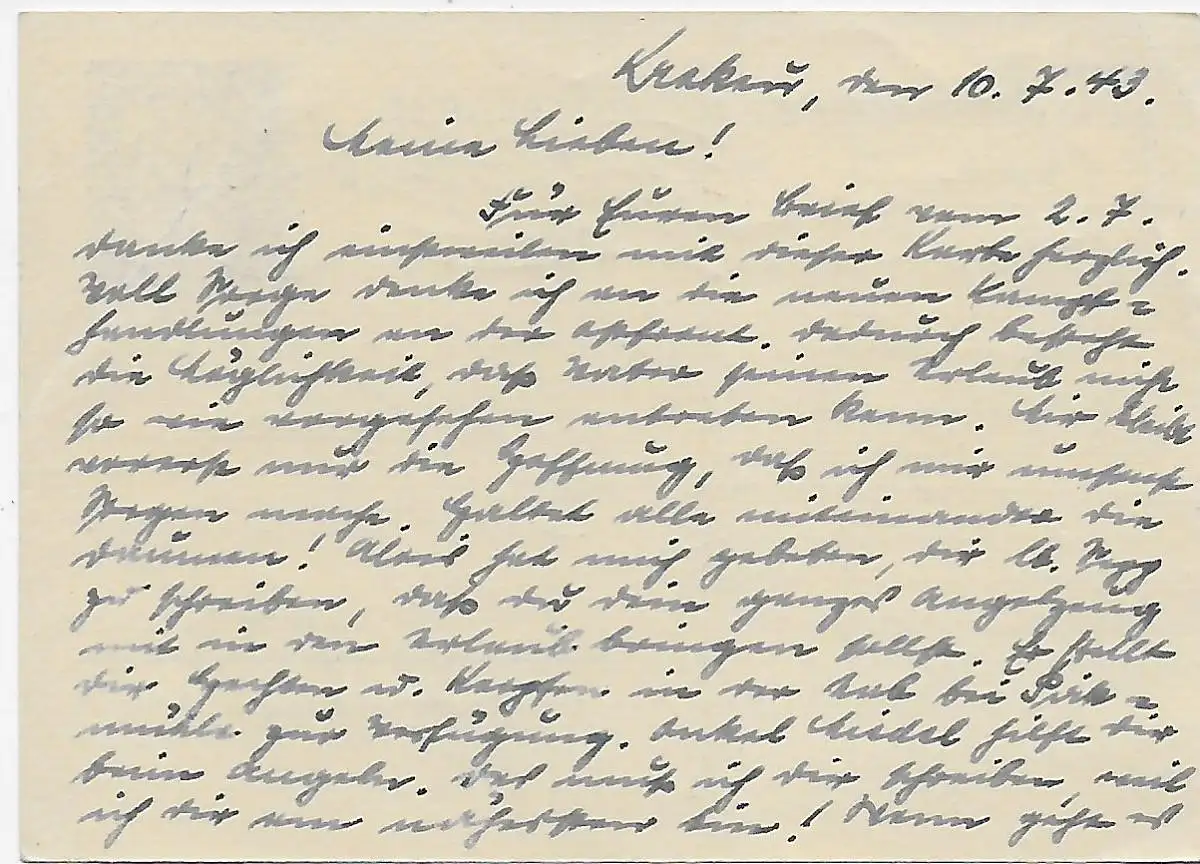 Krakau, den 10. 7. 43.
Meine Lieben!
Für Euren Brief vom 2. 7.
danke ich einstweilen mit dieser Karte herzlich.
Voll Sorge denke ich an die neuen Kampf=
handlungen an der Ostfront. Dadurch besteht
die Möglichkeit, daß Vater seinen Urlaub nicht
so wie vorgesehen antreten kann. Mir bleibt
vorerst nur die Hoffnung, daß ich mir umsonst
Sorgen mache. Haltet alle miteinander die
Daumen! Alois hat mich gebeten, dir lb. Sepp
zu schreiben, daß du dein ganzes Angelzeug
mit in den Urlaub bringen sollst. Er stellt
dir Hechten u. Karpfen in der bei Pirk=
mühle zur Verfügung. Onkel Miedel hilft dir
beim Angeln. Das muß ich dir schreiben, weil
ich dir am nähersten bin! Wann geht es